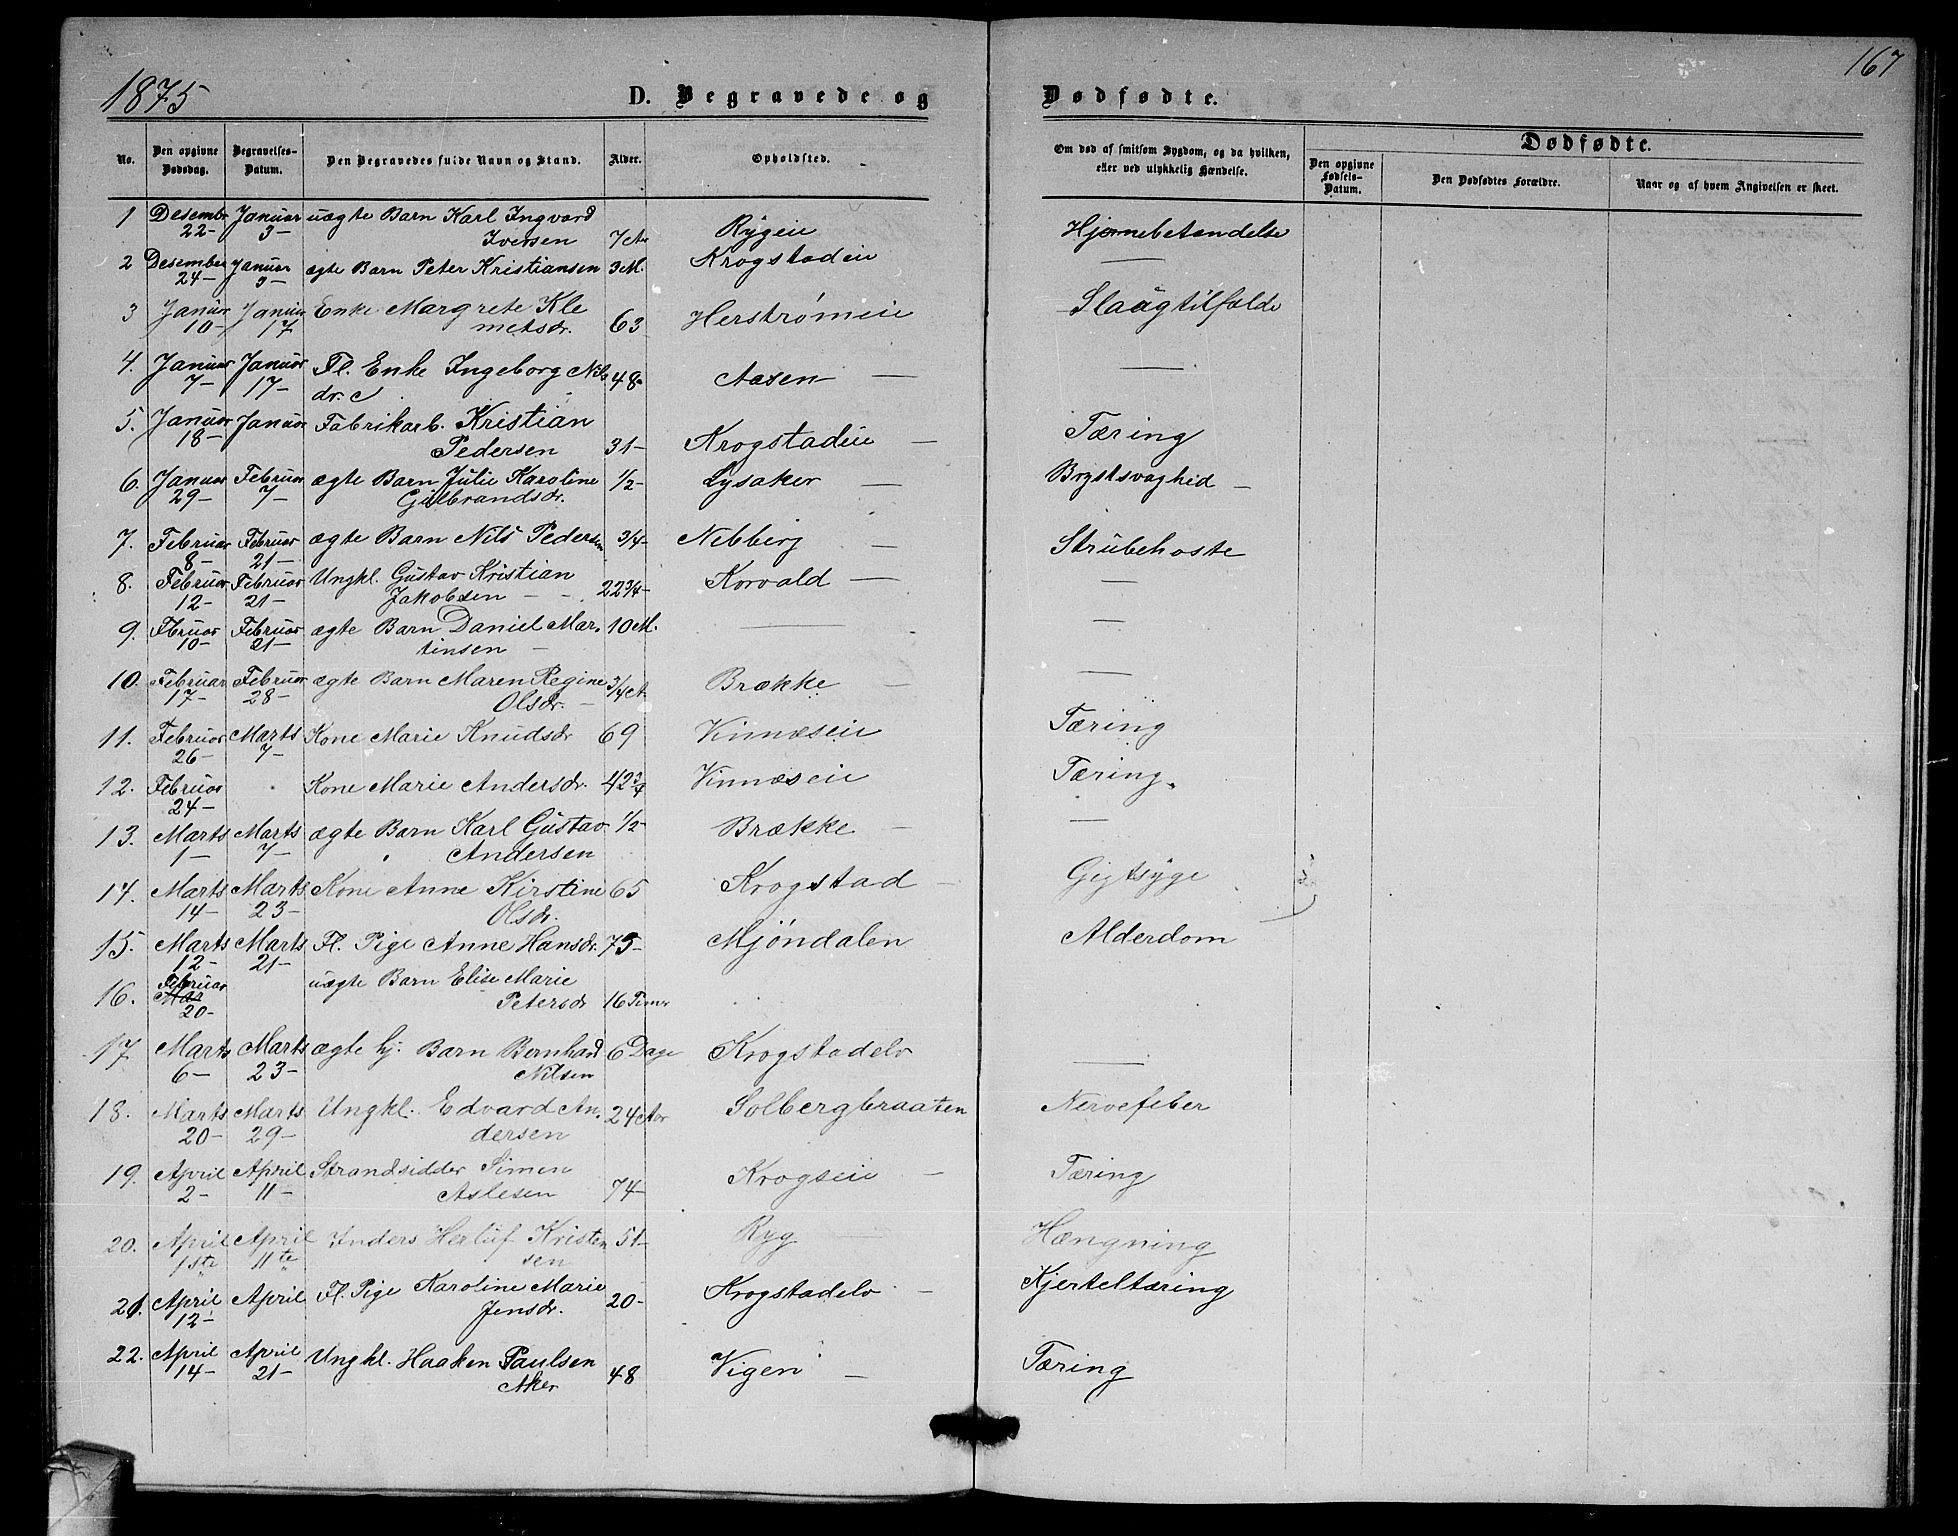 1875
167
D. Begravede og Dødfødte.
No. | Den opgivne Dødsdag. | Begravelses-Datum. | Den Begravedes fulde Navn og Stand. | Alder. | Opholdsted. | Om død af smitsom Sygdom, og da hvilken, eller ved ulykkelig Hændelse. | Dødfødte. | Den opgivne Fødsels-Datum. | Den Dødfødtes Forældre. | Naar og af hvem Angivelsen er skeet.
1 Desembr 22- Januar 3- uægte Barn Karl Ingvard Iversen 7 Rygeie Hjernebetændelse
2 Desember 24- Januar 3- ægte Barn Peter Kristiansen 3 M. Krogstadeie —
3 Januar 10- Januar 17 Enke Margrete Klemetsdr. 63 Herstrømeie Slaagtilfælde
4. Januar 7- Januar 17- Fl. Enke Ingeborg Nilsdr. 48- Aasen — —
5. Januar 18- Januar Fabrikarb. Kristian Pedersen 31- Krogstadeie — Tæring
6. Januar 29- Februar 7- ægte Barn Julie Karoline Gulbrandsdr. 1/2- Lysaker — Brystsvaghed —
7. Februar 8- Februar 21- ægte Barn Nils Pedersen 3/4- Nebberg — Strubehoste
8. Februar 12- Februar 21- Ungkl. Gustav Kristian Jakobsen - - 22 3/4- Korvald — —
9. Fbruar 10- Februar 21- ægte Barn Daniel Martinsen - 10 M. — —
10. Februar 17- Februar 28- ægte Barn Maren Regine Olsdr. - 3/4 A. Brække — —
11. Februar 26- Marts 7- Kone Marie Knudsdr 69 Vinnæseie Tæring
12. Februar 24- Kone Marie Andersdr. 42 3/4 Vinnæseie Tæring.
13. Marts 1- Marts 7- ægte Barn Karl Gustav Andersen 1/2- Brække — —
14. Marts 14- Marts 23- Kone Anne Kirstine Olsdr. 65 Krogstad — Gigtsyge
15. Marts 12- Marts 21- Fl. Pige Anne Hansdr. 75- Mjøndalen Alderdom
16. Februar 20- uægte Barn Elise Marie Petersdr 16 Timer
17 Marts 6- Marts 23- ægte hj. Barn Bernhard Nilsen 6 Dage Krogstadelv —
18. Marts 20- Marts 29- Ungkl. Edvard Andersen 24 Aar Solbergbraaten Nervefeber
19. April 2- April 11- Strandsidder Simen Aslesen 74- Krogseie — Tæring
20. April 1ste April 11te Inders Herluf Kristensen 51- Ryg — Hængning
21. April 12- April Fl. Pige Karoline Marie Jensdr. 20- Krogstadelv — Kjerteltæring
22. April 14- April 21- Ungkl. Haaken Paulsen Aker 48 Vigen — Tæring